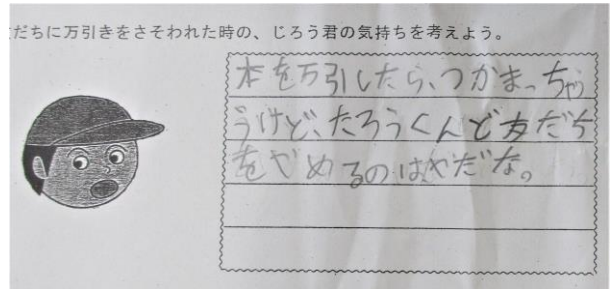 だちに万引きをさそわれた時の、じろう君の気持ちを考えよう。
本を万引したら、つかまっちゃ
うけど、たろうくんど友だち
をやめるのはやだな。